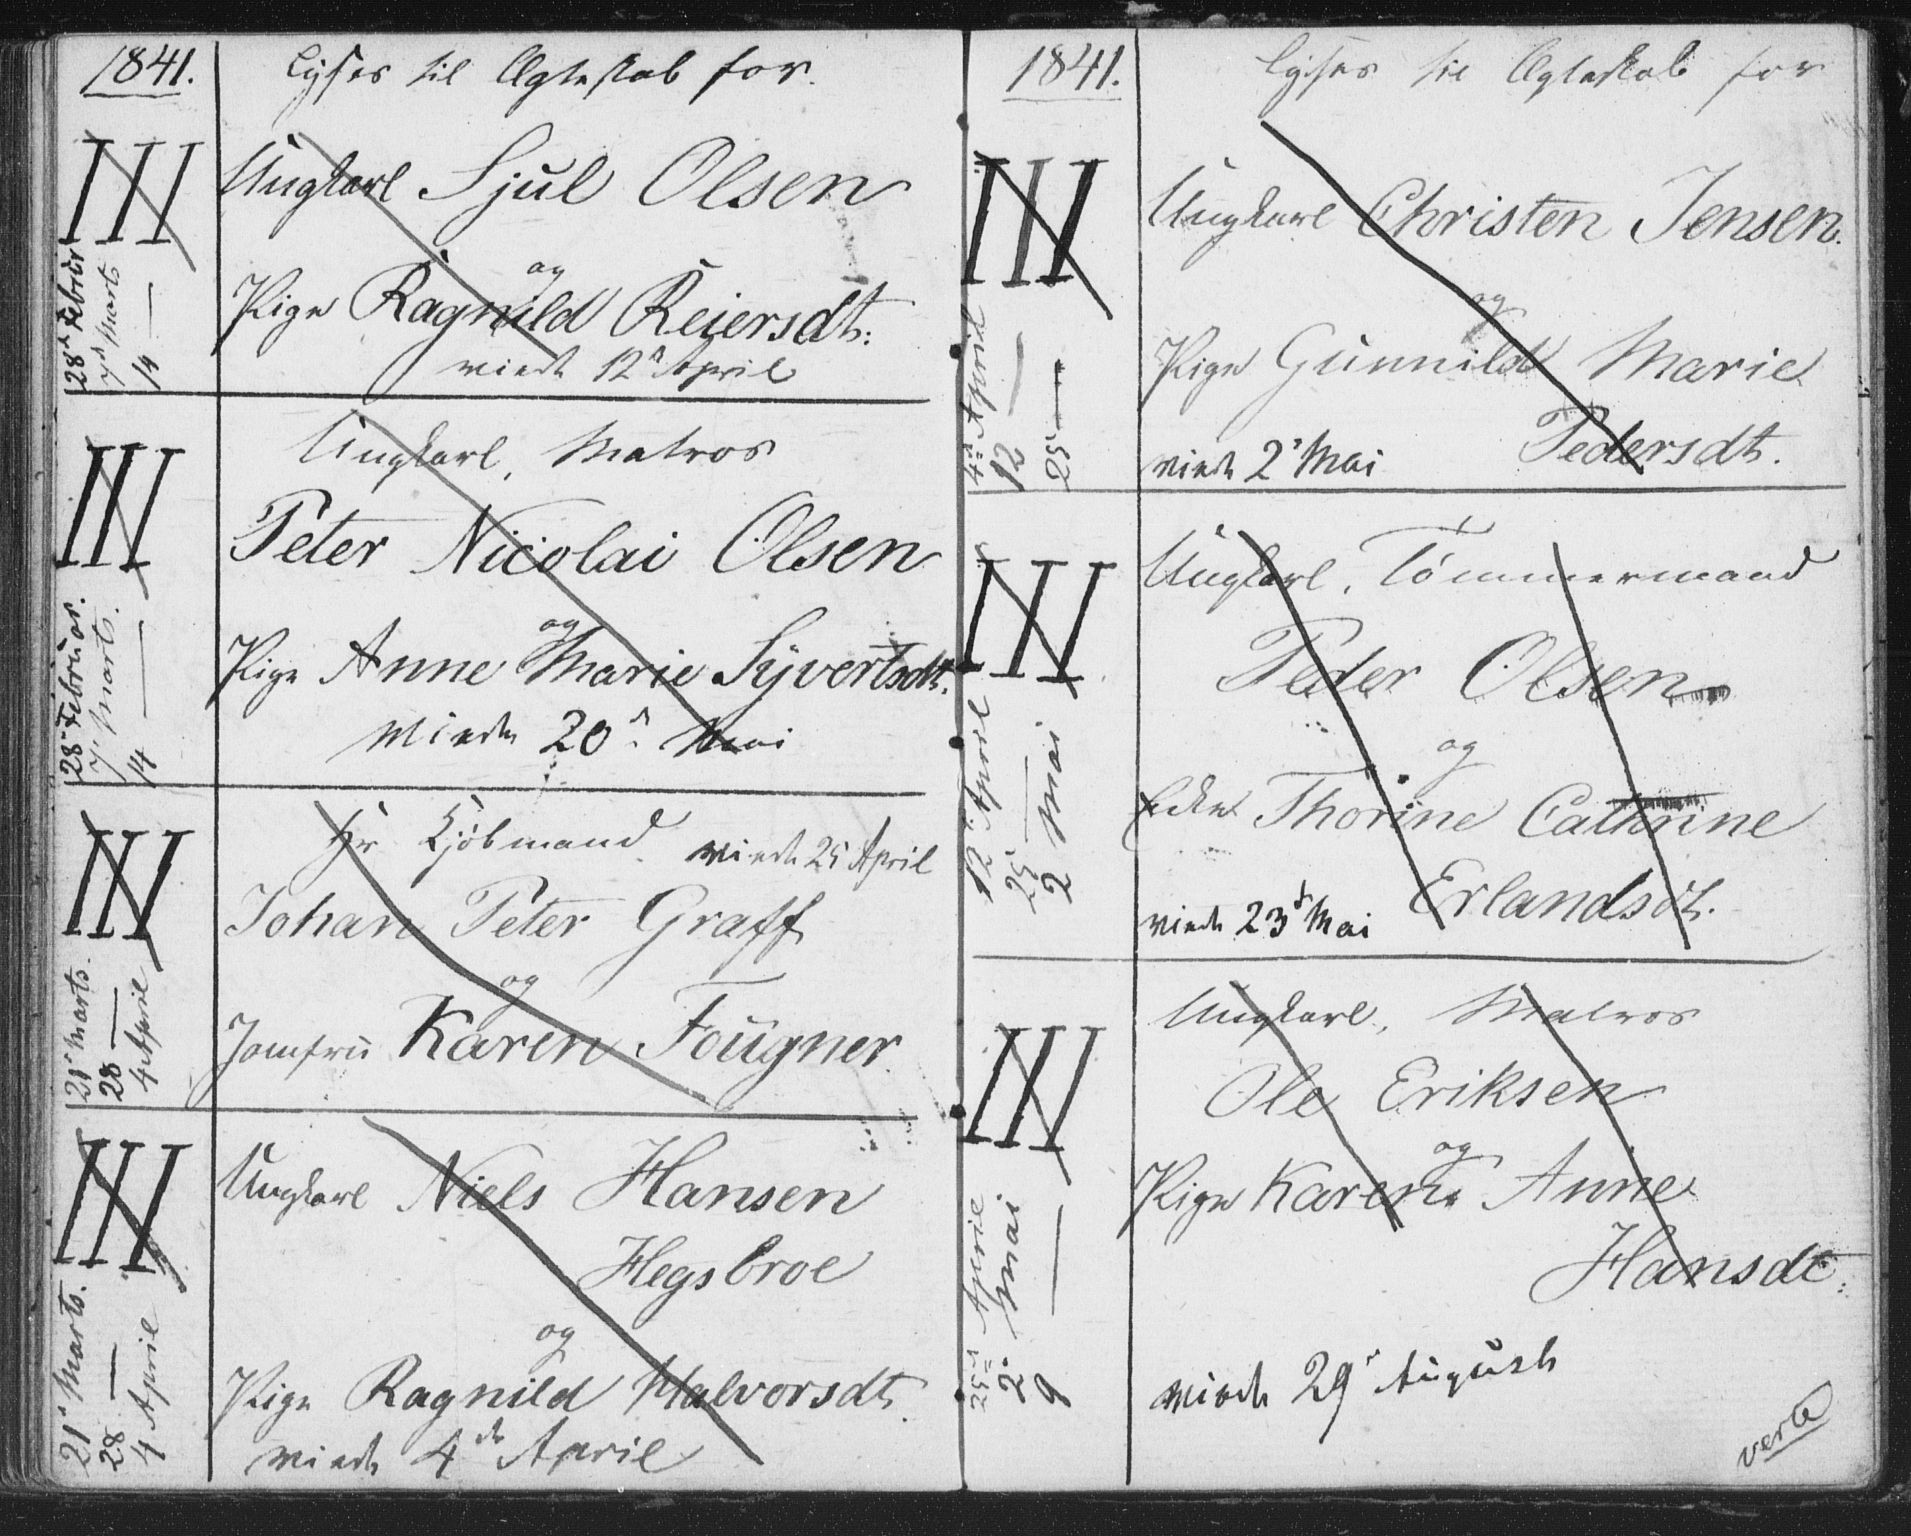 1841. Lyses til Ægteskab for.
III
28de Februar
7de Marts
14 —
Ungkarl Sjul Olsen
og
Pige Ragnild Reiersdt.
viede 12te April
III
28de Februar.
7de Marts.
14 —
Ungkarl, Matros
Peter Nicolai Olsen
og
Pige Anne Marie Syvertsdt.
viede 20de Mai
III
21de Marts.
28 —
4 April
Hr Kjöbmand viede 25 April
Johan Peter Graff
og
Jomfru Karen Fougner.
III
21de Marts.
28 —
4 April
Ungkarl Niels Hansen
Hegsbroe
og
Pige Ragnild Halvorsdt.
viede 4de April
1841. Lyses til Ægteskab for
III
4de April
12 —
25 —
Ungkarl Christen Jensen.
og
Pige Gunnild Marie
viede 2de Mai Pedersdt.
III
12te April
25 —
2 Mai
Ungkarl, Tömmermand
Peder Olsen
og
Thorine Cathrine
viede 23de Mai Erlandsdt.
III
25de April
2de Mai
9 —
Ungkarl, Matros
Ole Eriksen
og
Pige Karen Anne
Hansdt.
viede 29de August
verte